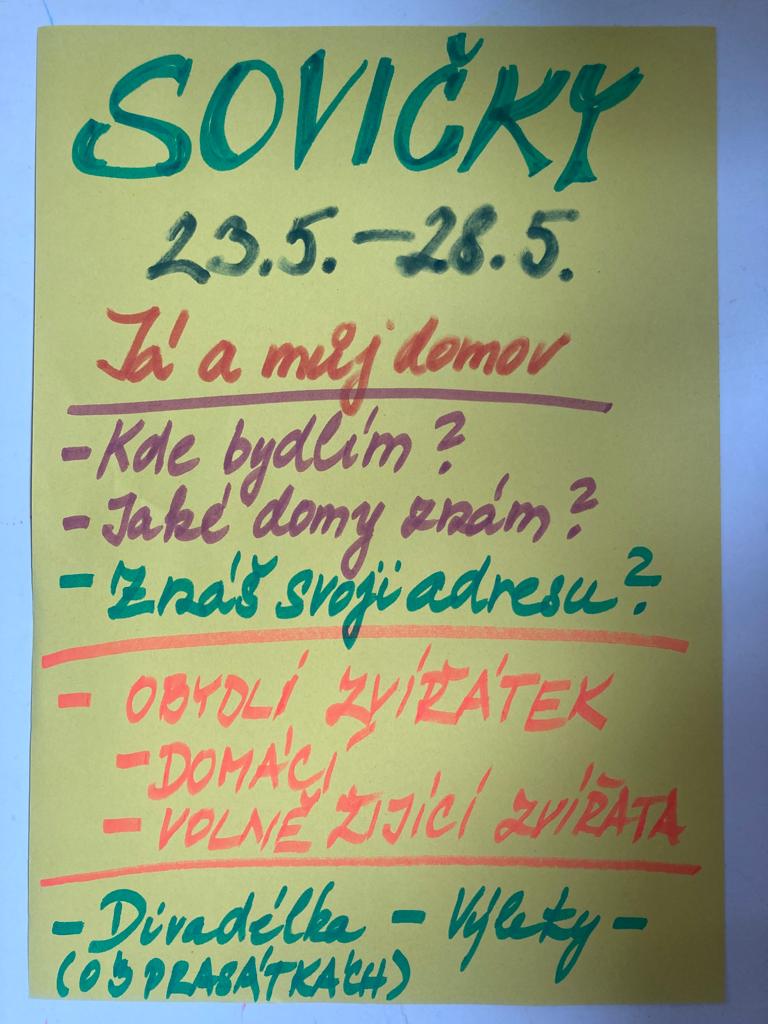 SOVIČKY
23.5. – 28.5.
Já a můj domov
- Kde bydlím?
- Jaké domy znám?
- Znáš svoji adresu?
- OBYDLÍ ZVÍŘÁTEK
- DOMÁCÍ
- VOLNĚ ŽIJÍCÍ ZVÍŘATA
- Divadélka - Výlety -
(O 3 PRASÁTKÁCH)